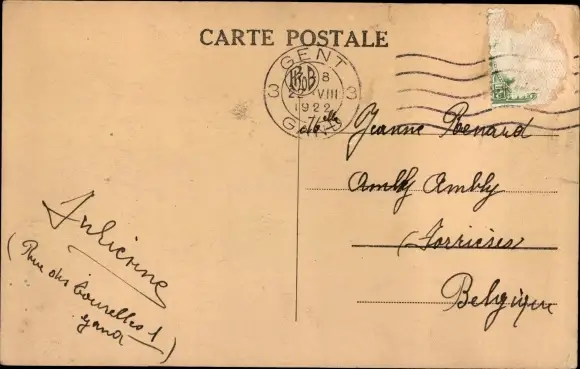 CARTE POSTALE
GENT
3 8 3
22 VIII
1922
GAND
Melle Jeanne Renard
Ambly
Forrières
Belgique
Julienne
(Rue des Tourelles 1
Gand)